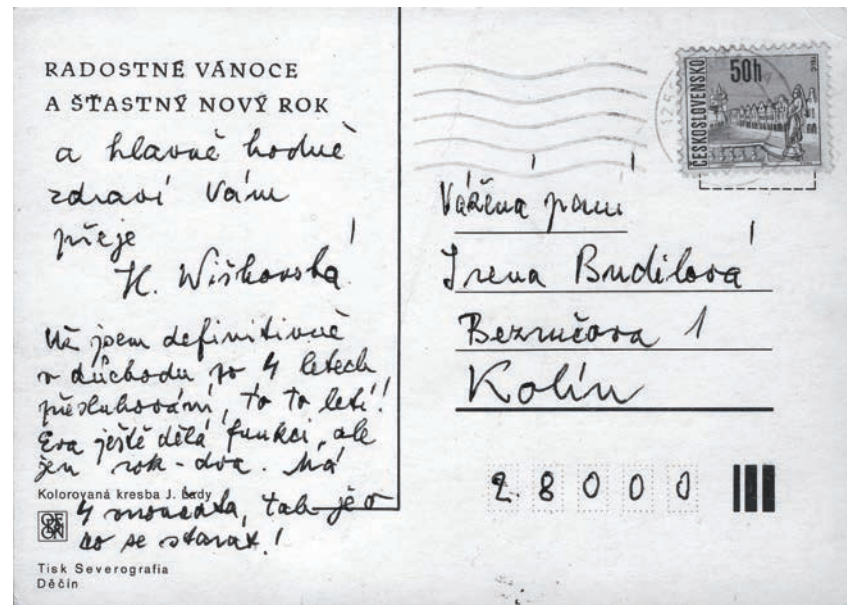 RADOSTNÉ VÁNOCE
A ŠŤASTNÝ NOVÝ ROK
a hlavně hodně
zdraví Vám
přeje
H. Wiškovská
Už jsem definitivně
v důchodu po 4 letech
přesluhování, to to letí!
Eva ještě dělá funkci, ale
jen rok - dva. Má
Kolorovaná kresba J. Lady
4 vnoučata, tak je o
co se starat!
Tisk Severografia
Děčín
ČESKOSLOVENSKO
50h
Vážená paní
Irena Budilová
Bezručova 1
Kolín
28000